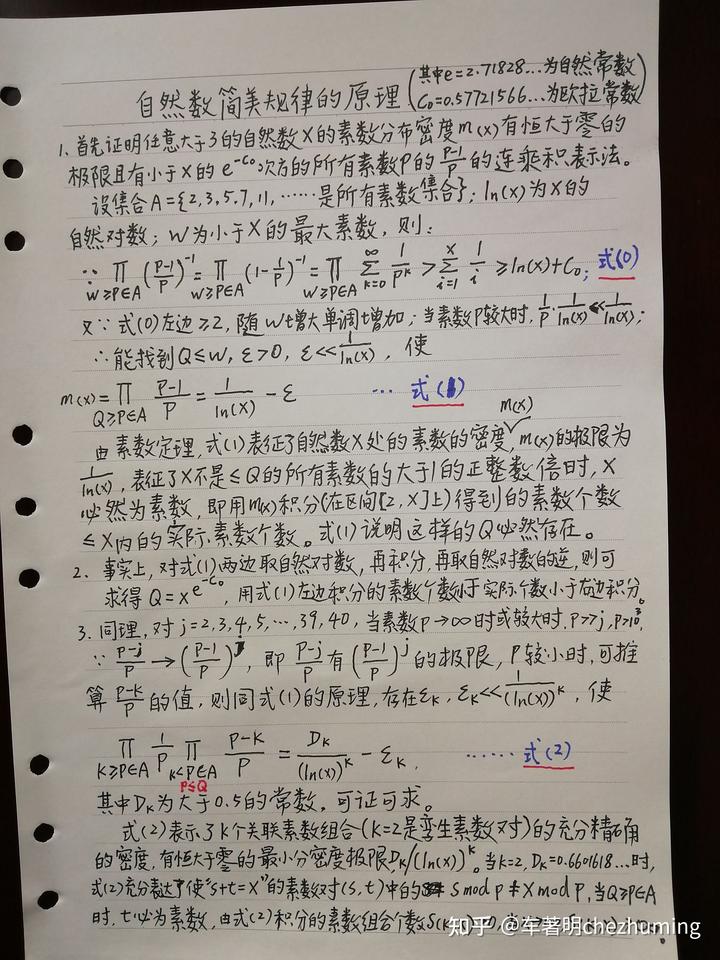 自然数简美规律的原理(其中e=2.71828...为自然常数
C₀=0.57721566...为欧拉常数)
1. 首先证明任意大于3的自然数X的素数分布密度m(x)有恒大于零的
极限且有小于X的e^{-C₀}次方的所有素数P的(P-1)/P的连乘积表示法。
设集合A={2,3,5,7,11,……是所有素数集合};ln(x)为X的
自然对数;W为小于X的最大素数,则:
∵ ∏_{W≥P∈A}((P-1)/P)^{-1}=∏_{W≥P∈A}(1-1/P)^{-1}=∏_{W≥P∈A} ∑_{k=0}^{∞} 1/P^k > ∑_{i=1}^{X} 1/i ≥ ln(x)+C₀; 式(0)
又∵式(0)左边≥2,随W增大单调增加;当素数P较大时,1/P·1/ln(x)≪1/ln(x);
∴能找到Q≤W,ε>0,ε≪1/ln(x),使
m(x)=∏_{Q≥P∈A} (P-1)/P = 1/ln(x) - ε … 式(1)
由素数定理,式(1)表征了自然数X处的素数的密度m(x),m(x)的极限为
1/ln(x),表征了X不是≤Q的所有素数的大于1的正整数倍时,X
必然为素数,即用m(x)积分(在区间[2,X]上)得到的素数个数
≤X内的实际素数个数。式(1)说明这样的Q必然存在。
2. 事实上,对式(1)两边取自然对数,再积分,再取自然对数的逆,则可
求得Q=x^{e^{-C₀}},用式(1)左边积分的素数个数 实际个数小于右边积分。
3. 同理,对j=2,3,4,5,…,39,40,当素数P→∞时或较大时,P≫j,P>10³,
∵ (P-j)/P→((P-1)/P)^j,即(P-j)/P有((P-1)/P)^j的极限,P较小时,可推
算(P-k)/P的值,则同式(1)的原理,存在ε_K,ε_K≪1/(ln(x))^k,使
∏_{K≥P∈A} 1/P ∏_{K<P∈A P≤Q} (P-K)/P = D_K/(ln(x))^K - ε_K. …… 式(2)
其中D_K为大于0.5的常数,可证可求。
式(2)表示了K个关联素数组合(K=2是孪生素数对)的充分精确
的密度,有恒大于零的最小分密度极限D_K/(ln(x))^K。当K=2,D_K=0.6601618…时,
式(2)充分表达了使"s+t=X"的素数对(s,t)中的 s mod P ≠ X mod P,当Q≥P∈A
时,t必为素数,由式(2)积分的素数组合个数S(K
知乎 @车著明chezhuming